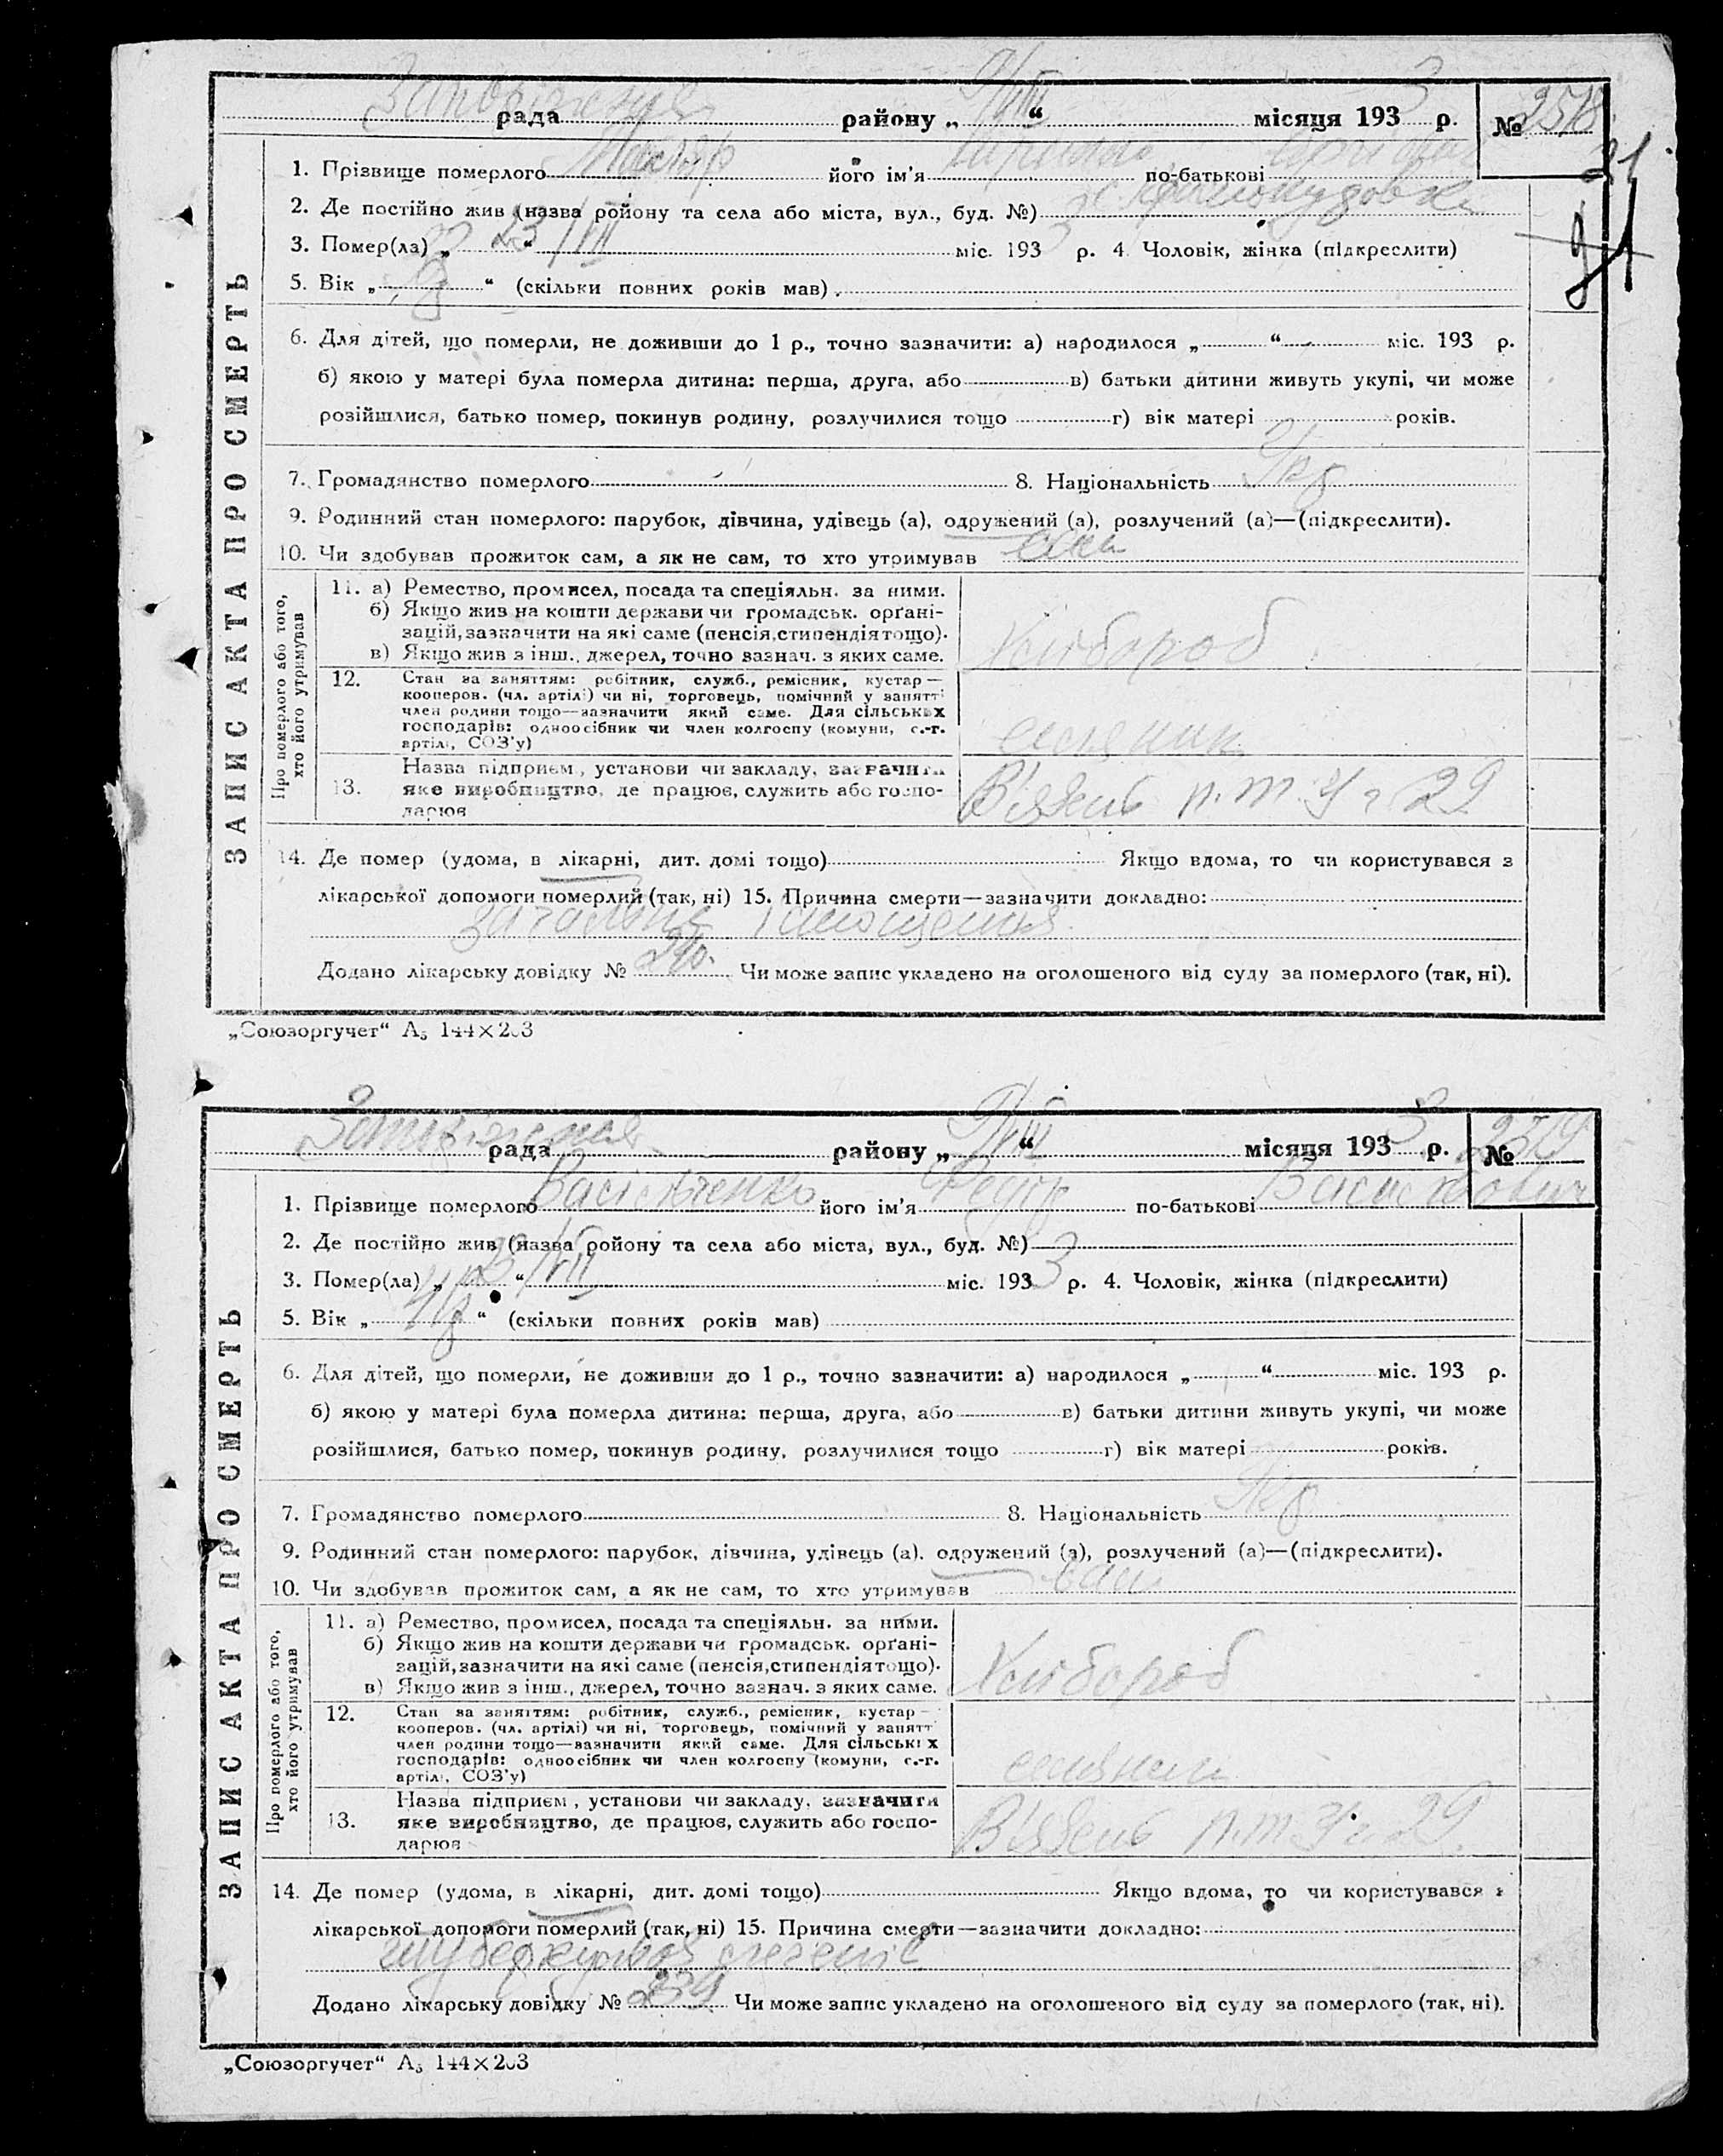 рада району „ VIII “ місяця 193 3 р. № 2518
31
1. Прізвище померлого його ім'я по-батькові
2. Де постійно жив (назва ройону та села або міста, вул., буд. №)
3. Помер(ла) „ 23/VII “ міс. 193 р. 4. Чоловік, жінка (підкреслити)
5. Вік „ “ (скільки повних років мав)
6. Для дітей, що померли, не доживши до 1 р., точно зазначити: а) народилося „ “ міс. 193 р.
б) якою у матері була померла дитина: перша, друга, або в) батьки дитини живуть укупі, чи може
розійшлися, батько помер, покинув родину, розлучилися тощо г) вік матері років.
7. Громадянство померлого 8. Національність Укр
9. Родинний стан померлого: парубок, дівчина, удівець (а), одружений (а), розлучений (а)—(підкреслити).
10. Чи здобував прожиток сам, а як не сам, то хто утримував сам
11. а) Ремество, промисел, посада та спеціяльн. за ними.
б) Якщо жив на кошти держави чи громадськ. орґані-
зацій, зазначити на які саме (пенсія, стипендія тощо).
в) Якщо жив з інш., джерел, точно зазнач. з яких саме.
Хлібороб
12. Стан за заняттям: робітник, служб., ремісник, кустар—
кооперов. (чл. артілі) чи ні, торговець, помічний у занятті
член родини тощо—зазначити який саме. Для сільських
господарів: одноосібник чи член колгоспу (комуни, с.-г.
артілі, СОЗ'у)
селянин
13. Назва підприєм., установи чи закладу, зазначити
яке виробництво, де працює, служить або госпо-
дарює
В'язень п.т.у. 29
14. Де помер (удома, в лікарні, дит. домі тощо) Якщо вдома, то чи користувався з
лікарської допомоги померлий (так, ні) 15. Причина смерти—зазначити докладно:
Додано лікарську довідку № 240. Чи може запис укладено на оголошеного від суду за померлого (так, ні).
ЗАПИС АКТА ПРО СМЕРТЬ
Про померлого або того,
хто його утримував
„Союзоргучет“ А5 144×203
рада району „ VIII “ місяця 193 3 р. № 2519
1. Прізвище померлого Васільченко його ім'я Федір по-батькові Васильович
2. Де постійно жив (назва ройону та села або міста, вул., буд. №)
3. Помер(ла) „ 23/VII “ міс. 193 3 р. 4. Чоловік, жінка (підкреслити)
5. Вік „ “ (скільки повних років мав)
6. Для дітей, що померли, не доживши до 1 р., точно зазначити: а) народилося „ “ міс. 193 р.
б) якою у матері була померла дитина: перша, друга, або в) батьки дитини живуть укупі, чи може
розійшлися, батько помер, покинув родину, розлучилися тощо г) вік матері років.
7. Громадянство померлого 8. Національність Укр
9. Родинний стан померлого: парубок, дівчина, удівець (а), одружений (а), розлучений (а)—(підкреслити).
10. Чи здобував прожиток сам, а як не сам, то хто утримував сам
11. а) Ремество, промисел, посада та спеціяльн. за ними.
б) Якщо жив на кошти держави чи громадськ. орґані-
зацій, зазначити на які саме (пенсія, стипендія тощо).
в) Якщо жив з інш., джерел, точно зазнач. з яких саме.
Хлібороб
12. Стан за заняттям: робітник, служб., ремісник, кустар—
кооперов. (чл. артілі) чи ні, торговець, помічний у занятт
член родини тощо—зазначити який саме. Для сільських
господарів: одноосібник чи член колгоспу (комуни, с.-г.
артілі, СОЗ'у)
селянин
13. Назва підприєм., установи чи закладу, зазначити
яке виробництво, де працює, служить або госпо-
дарює
В'язень п.т.у. 29
14. Де помер (удома, в лікарні, дит. домі тощо) Якщо вдома, то чи користувався з
лікарської допомоги померлий (так, ні) 15. Причина смерти—зазначити докладно:
Додано лікарську довідку № 239 Чи може запис укладено на оголошеного від суду за померлого (так, ні).
ЗАПИС АКТА ПРО СМЕРТЬ
Про померлого або того,
хто його утримував
„Союзоргучет“ А5 144×203